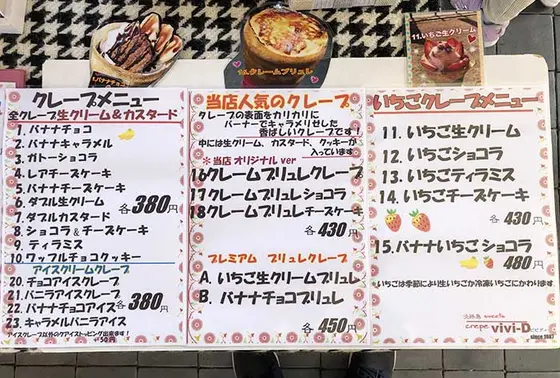 1.バナナチョコ
12.クレームブリュレ
11.いちご生クリーム
クレープメニュー
全クレープ生クリーム&カスタード
1. バナナチョコ
2. バナナキャラメル
3. ガトーショコラ
4. レアチーズケーキ
5. バナナチーズケーキ
6. ダブル生クリーム
7. ダブルカスタード
8. ショコラ&チーズケーキ
9. ティラミス
10. ワッフルチョコクッキー
各380円
アイスクリームクレープ
20. チョコアイスクレープ
21. バニラアイスクレープ
22. バナナチョコアイス
23. キャラメルバニラアイス
各380円
アイスクレープ以外のクアイストッピング出来ます!
+50円
当店人気のクレープ
クレープの表面をカリカリに
バーナーでキャラメリゼした
香ばしいクレープです!
中には生クリーム、カスタード、クッキーが
入っています
*当店 オリジナル ver
16クレームブリュレクレープ
17クレームブリュレショコラ
18クレームブリュレチーズケーキ
各430円
プレミアム ブリュレクレープ
A. いちご生クリームブリュレ
B. バナナチョコブリュレ
各450円
いちごクレープメニュー
11. いちご生クリーム
12. いちごショコラ
13. いちごティラミス
14. いちごチーズケーキ
各430円
15. バナナいちごショコラ
480円
*いちごは季節により生いちごか冷凍いちごにかわります
sweets
crepe vivi-D
since 1987